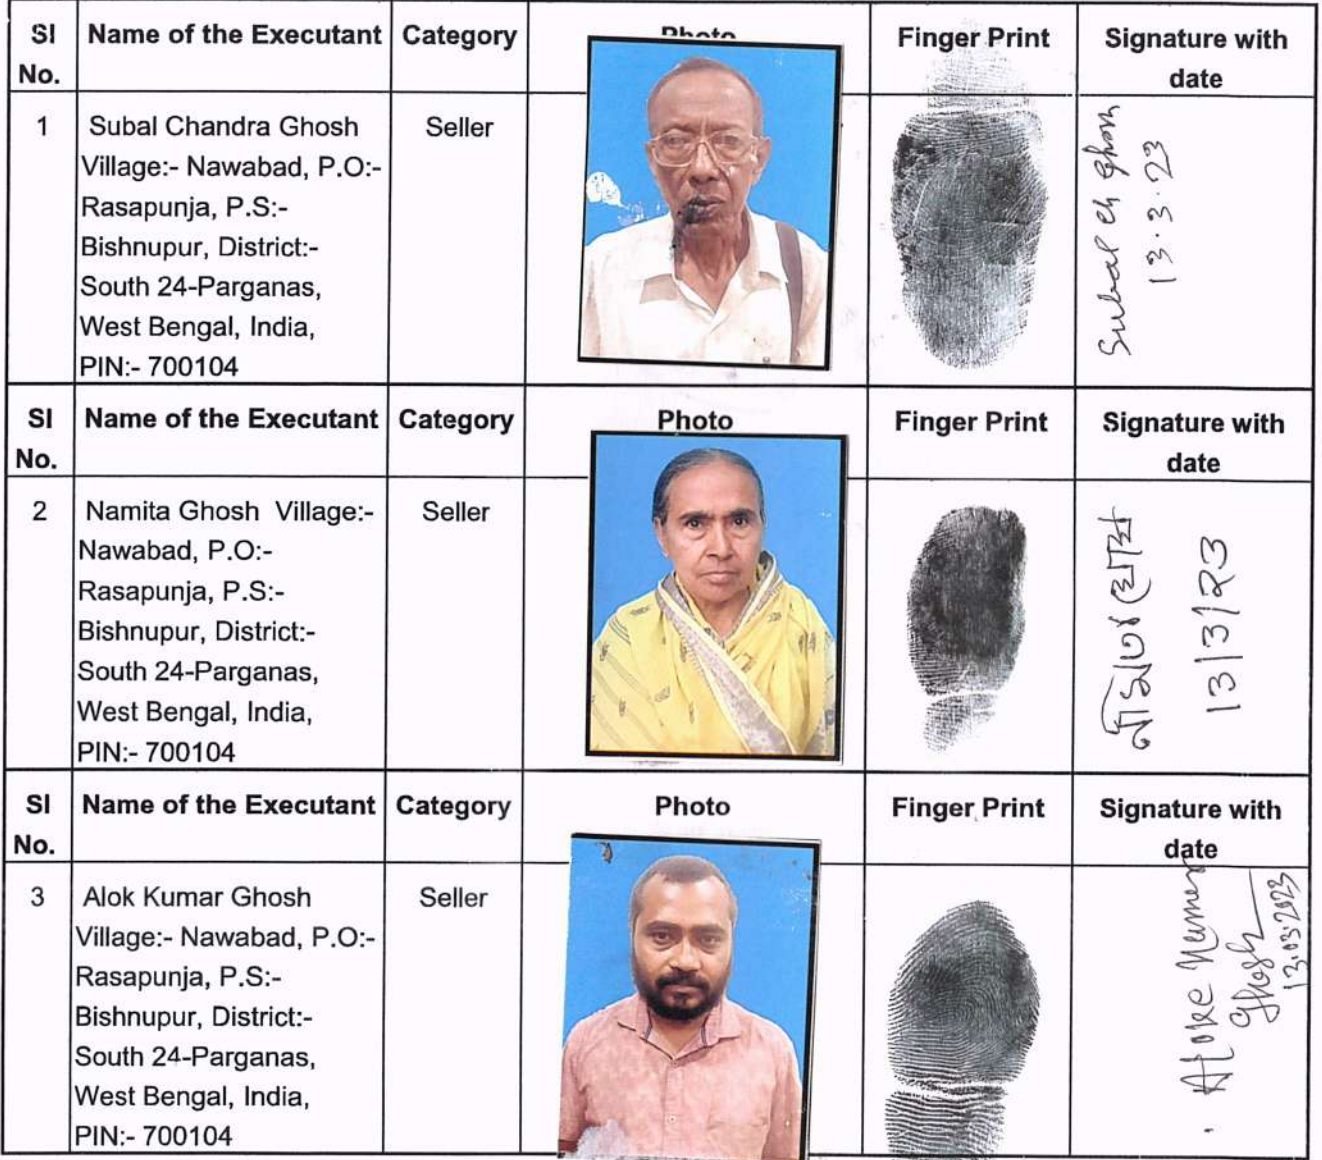 Sl No. Name of the Executant Category Photo Finger Print Signature with date
1 Subal Chandra Ghosh Seller
Village:- Nawabad, P.O:-
Rasapunja, P.S:-
Bishnupur, District:-
South 24-Parganas,
West Bengal, India,
PIN:- 700104
Subal Ch Ghosh
13.3.23
Sl No. Name of the Executant Category Photo Finger Print Signature with date
2 Namita Ghosh Village:- Seller
Nawabad, P.O:-
Rasapunja, P.S:-
Bishnupur, District:-
South 24-Parganas,
West Bengal, India,
PIN:- 700104
নমিতা ঘোষ
13/3/23
Sl No. Name of the Executant Category Photo Finger Print Signature with date
3 Alok Kumar Ghosh Seller
Village:- Nawabad, P.O:-
Rasapunja, P.S:-
Bishnupur, District:-
South 24-Parganas,
West Bengal, India,
PIN:- 700104
Aloke Kumar
Ghosh
13.03.2023